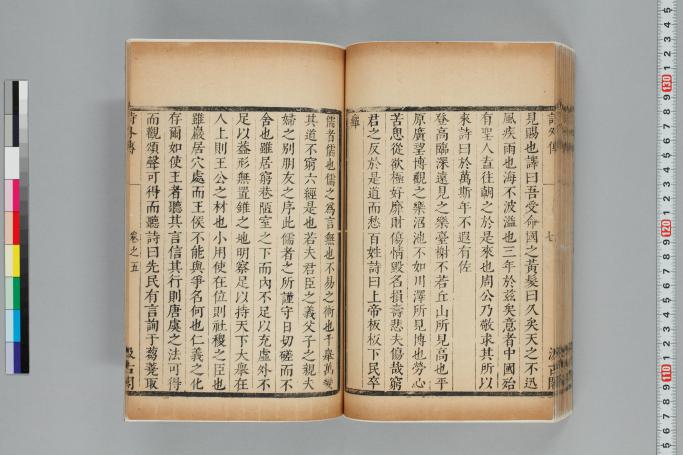 見賜也譯曰吾受命國之黃髮曰久矣天之不迅
風疾雨也海不波溢也三年於茲矣意者中國殆
有聖人盍往朝之於是來也周公乃敬求其所以
來詩曰於萬斯年不遐有佐
登高臨深遠見之樂臺榭不若丘山所見高也平
原廣望博觀之樂沼池不如川澤所見博也勞心
苦思從欲極好靡財傷情毀名損壽悲夫傷哉窮
君之反於是道而愁百姓詩曰上帝板板下民卒
癉
儒者儒也儒之爲言無也不易之術也千舉萬變
其道不窮六經是也若夫君臣之義父子之親夫
婦之別朋友之序此儒者之所謹守日切磋而不
舍也雖居窮巷陋室之下而內不足以充虛外不
足以葢形無置錐之地明察足以持天下大舉在
人上則王公之材也小用使在位則社稷之臣也
雖巖居穴處而王侯不能與爭名何也仁義之化
存爾如使王者聽其言信其行則唐虞之法可得
而觀頌聲可得而聽詩曰先民有言詢于芻蕘取
詩外傳
卷之五
汲古閣